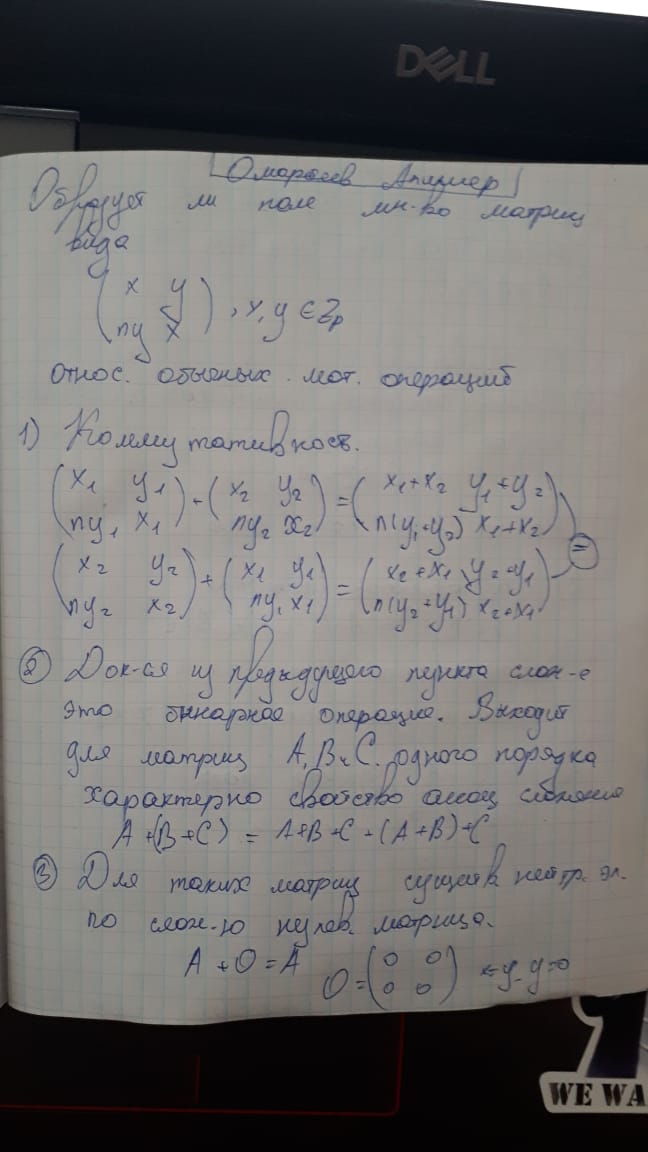 DELL
Образует ли поле мн-во матриц
вида
( x y
ny x ) , x, y ∈ Zp
относ. обычных мат. операций
1) Коммутативност.
( x1 y1
ny1 x1 ) + ( x2 y2
ny2 x2 ) = ( x1+x2 y1+y2
n(y1+y2) x1+x2 )
( x2 y2
ny2 x2 ) + ( x1 y1
ny1 x1 ) = ( x2+x1 y2+y1
n(y2+y1) x2+x1 )
=
2 Док-ся из предыдущего пункта слож-е
это бинарная операция. Выходит
для матриц A, B и C одного порядка
характерно свойство ассоц сложения
A+(B+C) = A+B+C = (A+B)+C
3 Для таких матриц существ нейтр. эл.
по слож-ю нулев. матрица.
A + O = A O = ( 0 0
0 0 )
WE WA